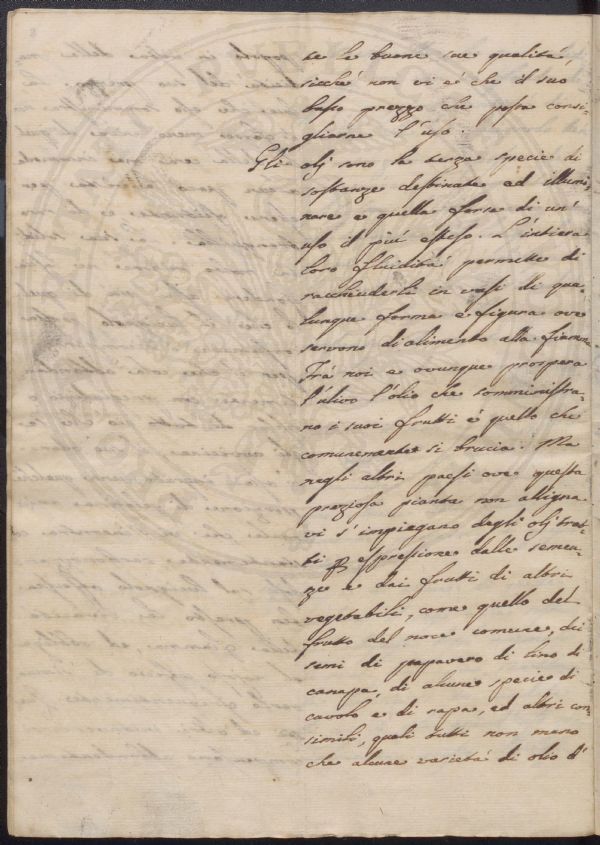 te le buone sue qualità,
sicché non vi é che il suo
basso prezzo che possa consi-
gliarne l'uso.
Gli olj sono la terza specie di
sostanze destinate ad illumi-
nare e quella forse di un'
uso il piú esteso. L'intiera
loro fluidità permette di
racchiuderli in vasi di qua-
lunque forma e figura ove
servono di alimento alla fiamma
Trà noi e ovunque prospera
l'ulivo l'olio che somministra-
no i suoi frutti é quello che
comunemente si brucia. Ma
negli altri paesi ove questa
preziosa pianta non alligna
vi s'impiegano degli olj trat-
ti espressione dalle semen-
ze e dai frutti di altri
vegetabili, come quello del
frutto del noce comune, di
semi di papavero di lino di
canapa, di alcune specie di
cavolo e di rapa, ed altri con-
simili, quali tutti non meno
che alcune varietá di olio d'